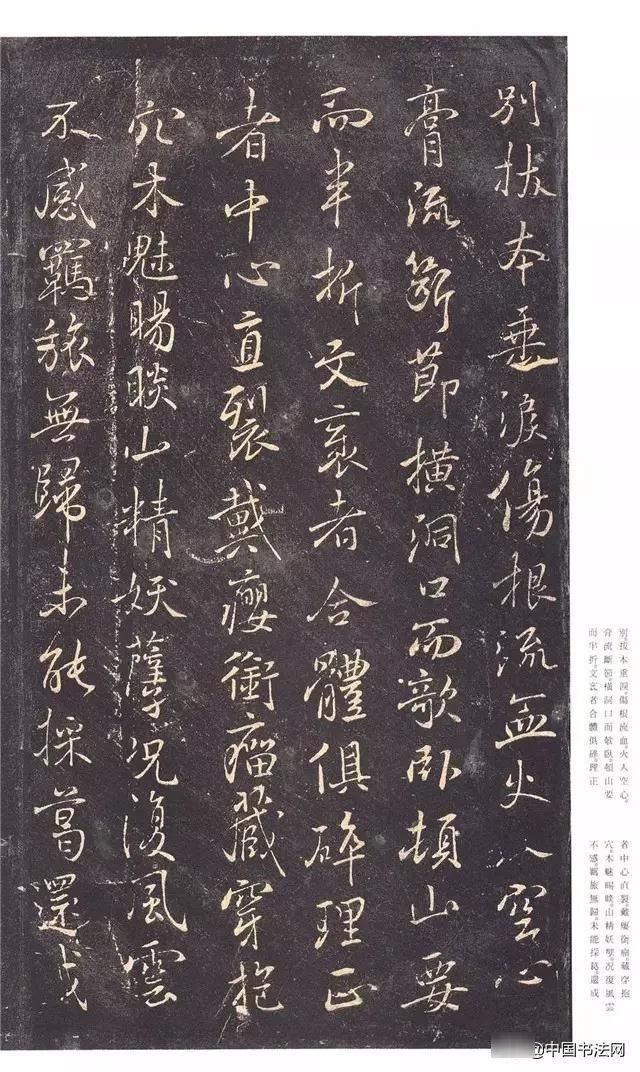 别拔本垂淚傷根流血火入空心
膏流斷節橫洞口而欹臥頓山要
而半折文袤者合體俱碎理正
者中心直裂戴癭銜瘤藏穿抱
穴木魅睗睒山精妖孽況復風雲
不感羈旅無歸未能採葛還成
別。拔本垂淚。傷根流血。火入空心。
膏流斷節。橫洞口而欹臥。頓山要
而半折。文袤者合體俱碎。理正
者中心直裂。戴癭銜瘤。藏穿抱
穴。木魅睗睒。山精妖孽。況復風雲
不感。羈旅無歸。未能採葛。還成
@中国书法网